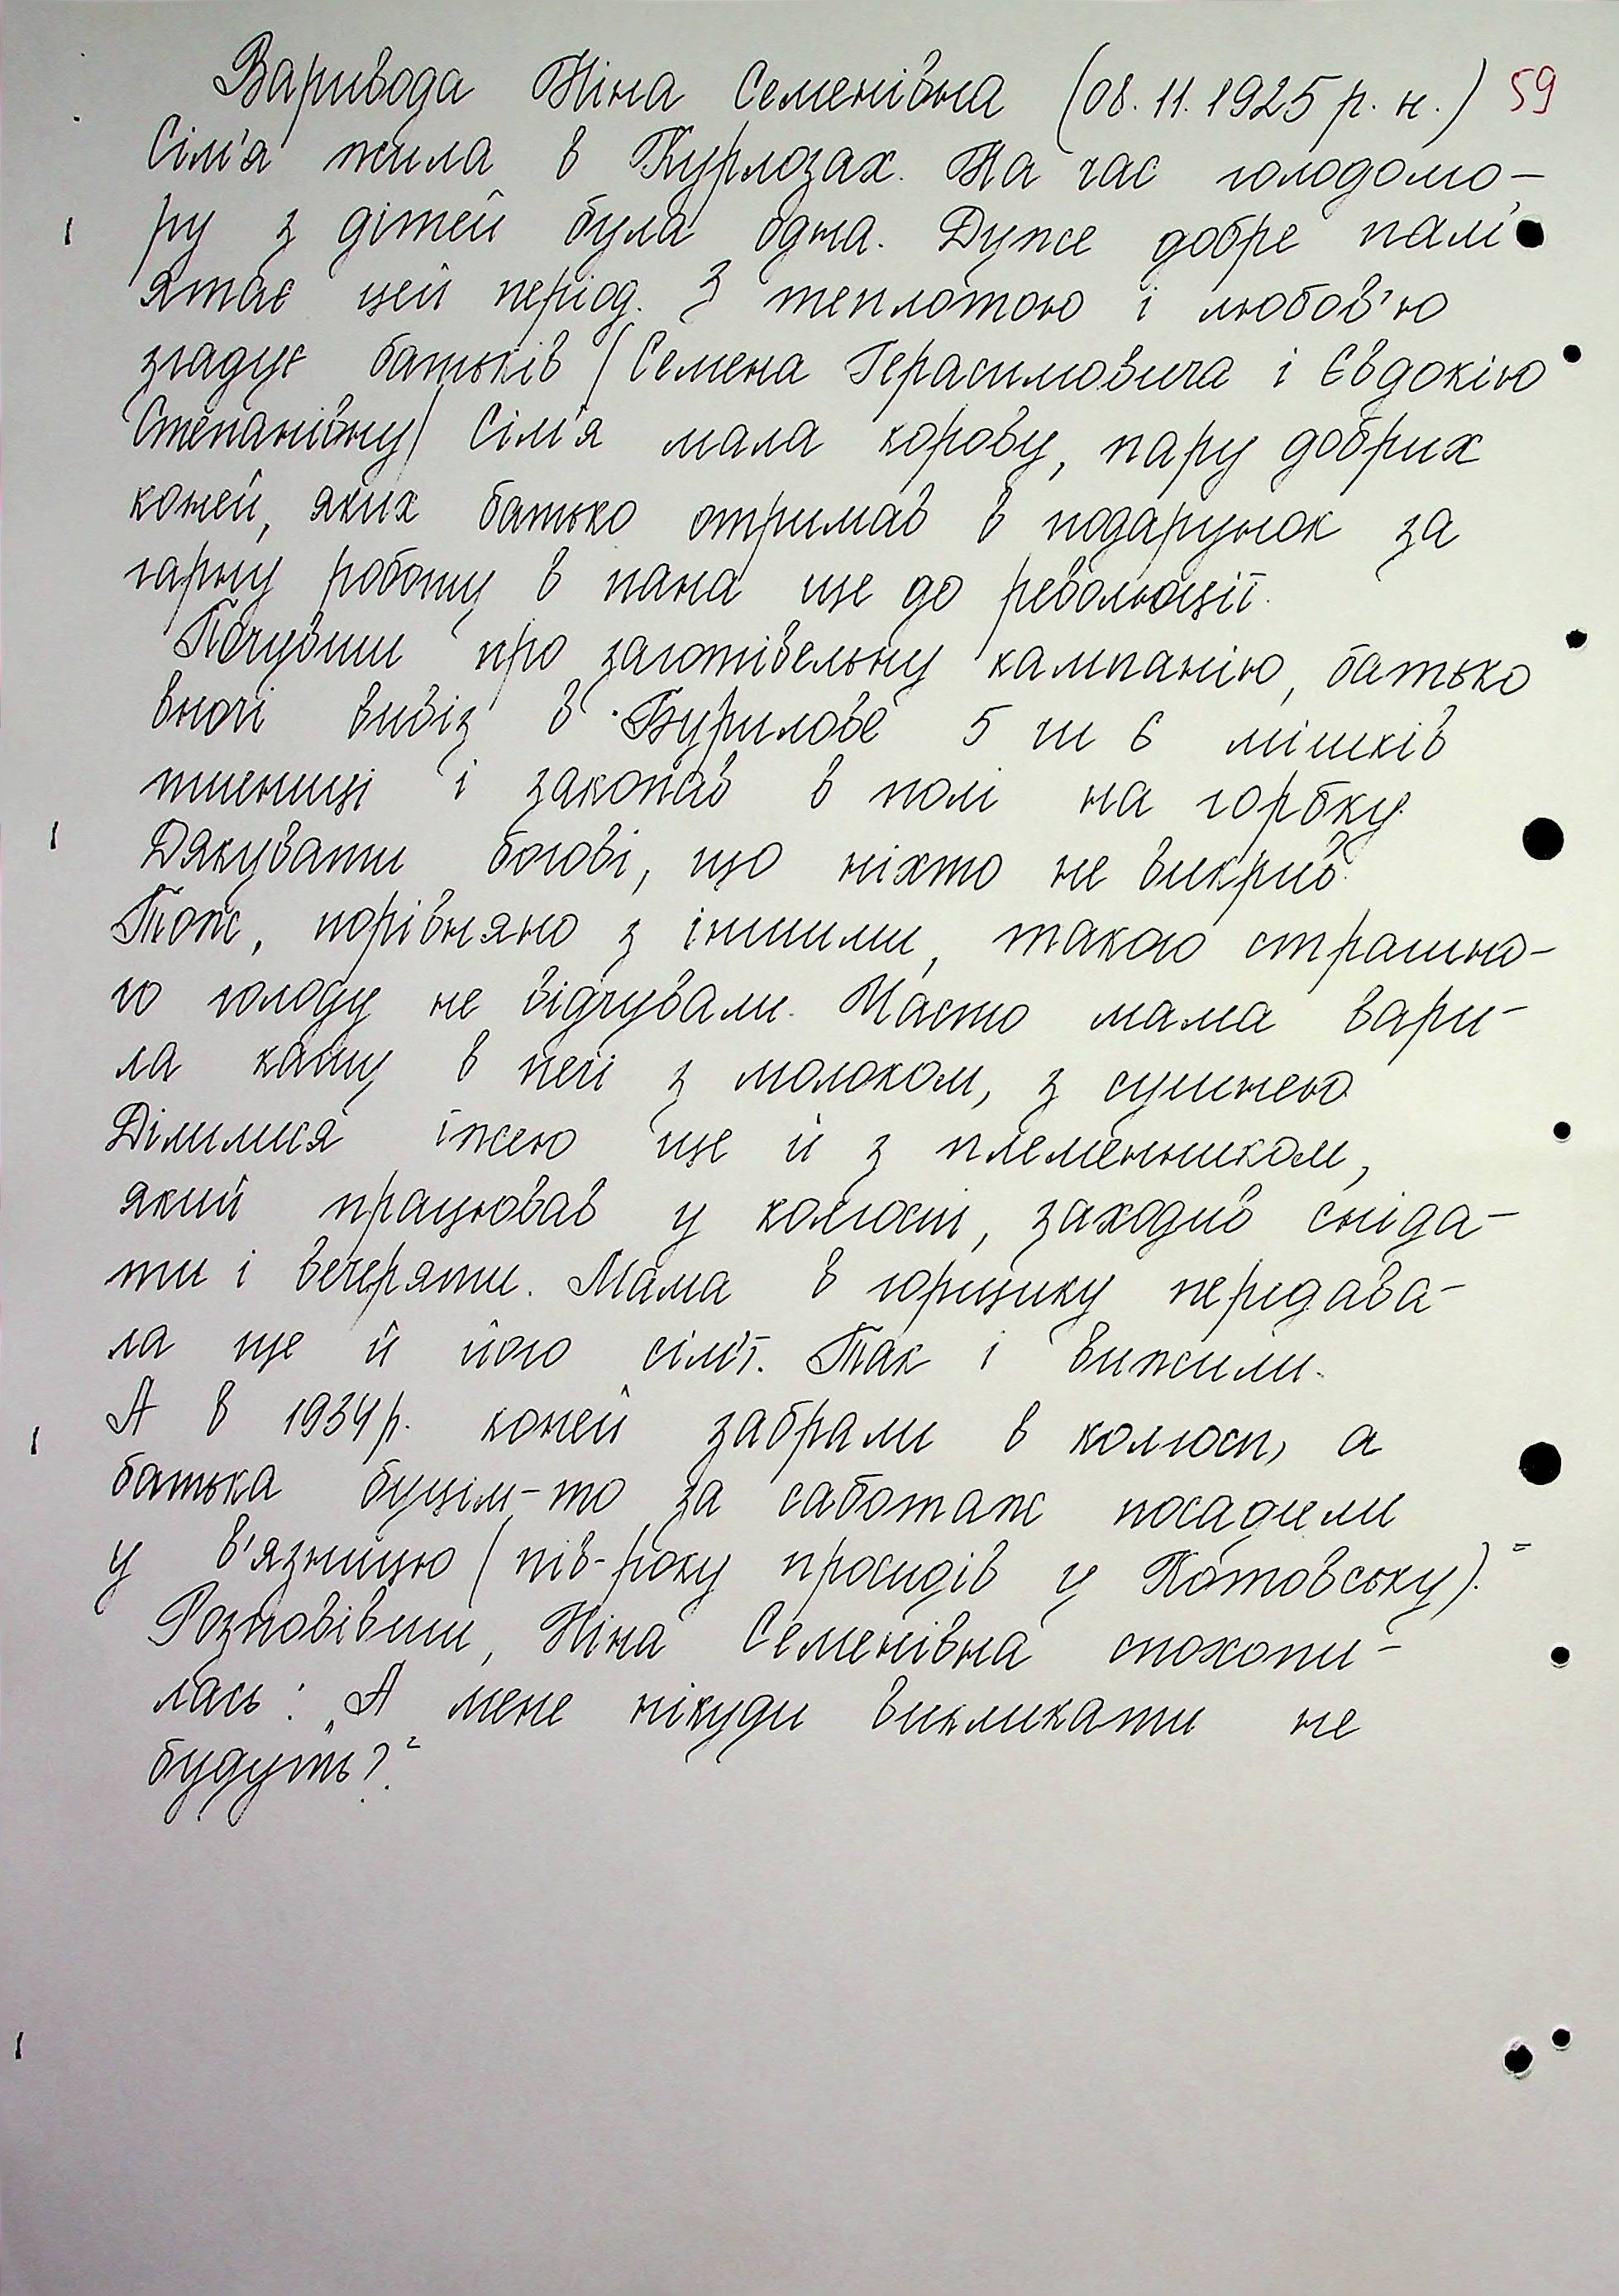 Варивода Ніна Семенівна (08.11.1925 р. н.) 59
Сім'я жила в Курлозах. На час голодомо-
ру з дітей була одна. Дуже добре пам'
ятає цей період. З теплотою і любов'ю
згадує батьків (Семена Герасимовича і Євдокію
Степанівну) Сім'я мала корову, пару добрих
коней, яких батько отримав в подарунок за
гарну роботу в пана ще до революції.
Почувши про заготівельну кампанію, батько
вночі вивіз в Бурилове 5 чи 6 мішків
пшениці і закопав в полі на горбку.
Дякувати богові, що ніхто не викрив.
Тож, порівняно з іншими, такого страшно-
го голоду не відчували. Часто мама вари-
ла кашу в печі з молоком, з сушнею
Ділилися їжею ще й з племенником,
який працював у колгоспі, заходив сніда-
ти і вечеряти. Мама в горщику передава-
ла ще й його сім'ї. Так і вижили.
А в 1934р. коней забрали в колгосп, а
батька буцім-то за саботаж посадили
у в'язницю (пів-року просидів у Котовську)."
Розповівши, Ніна Семенівна спохопи-
лась: „А мене нікуди викликати не
будуть?"